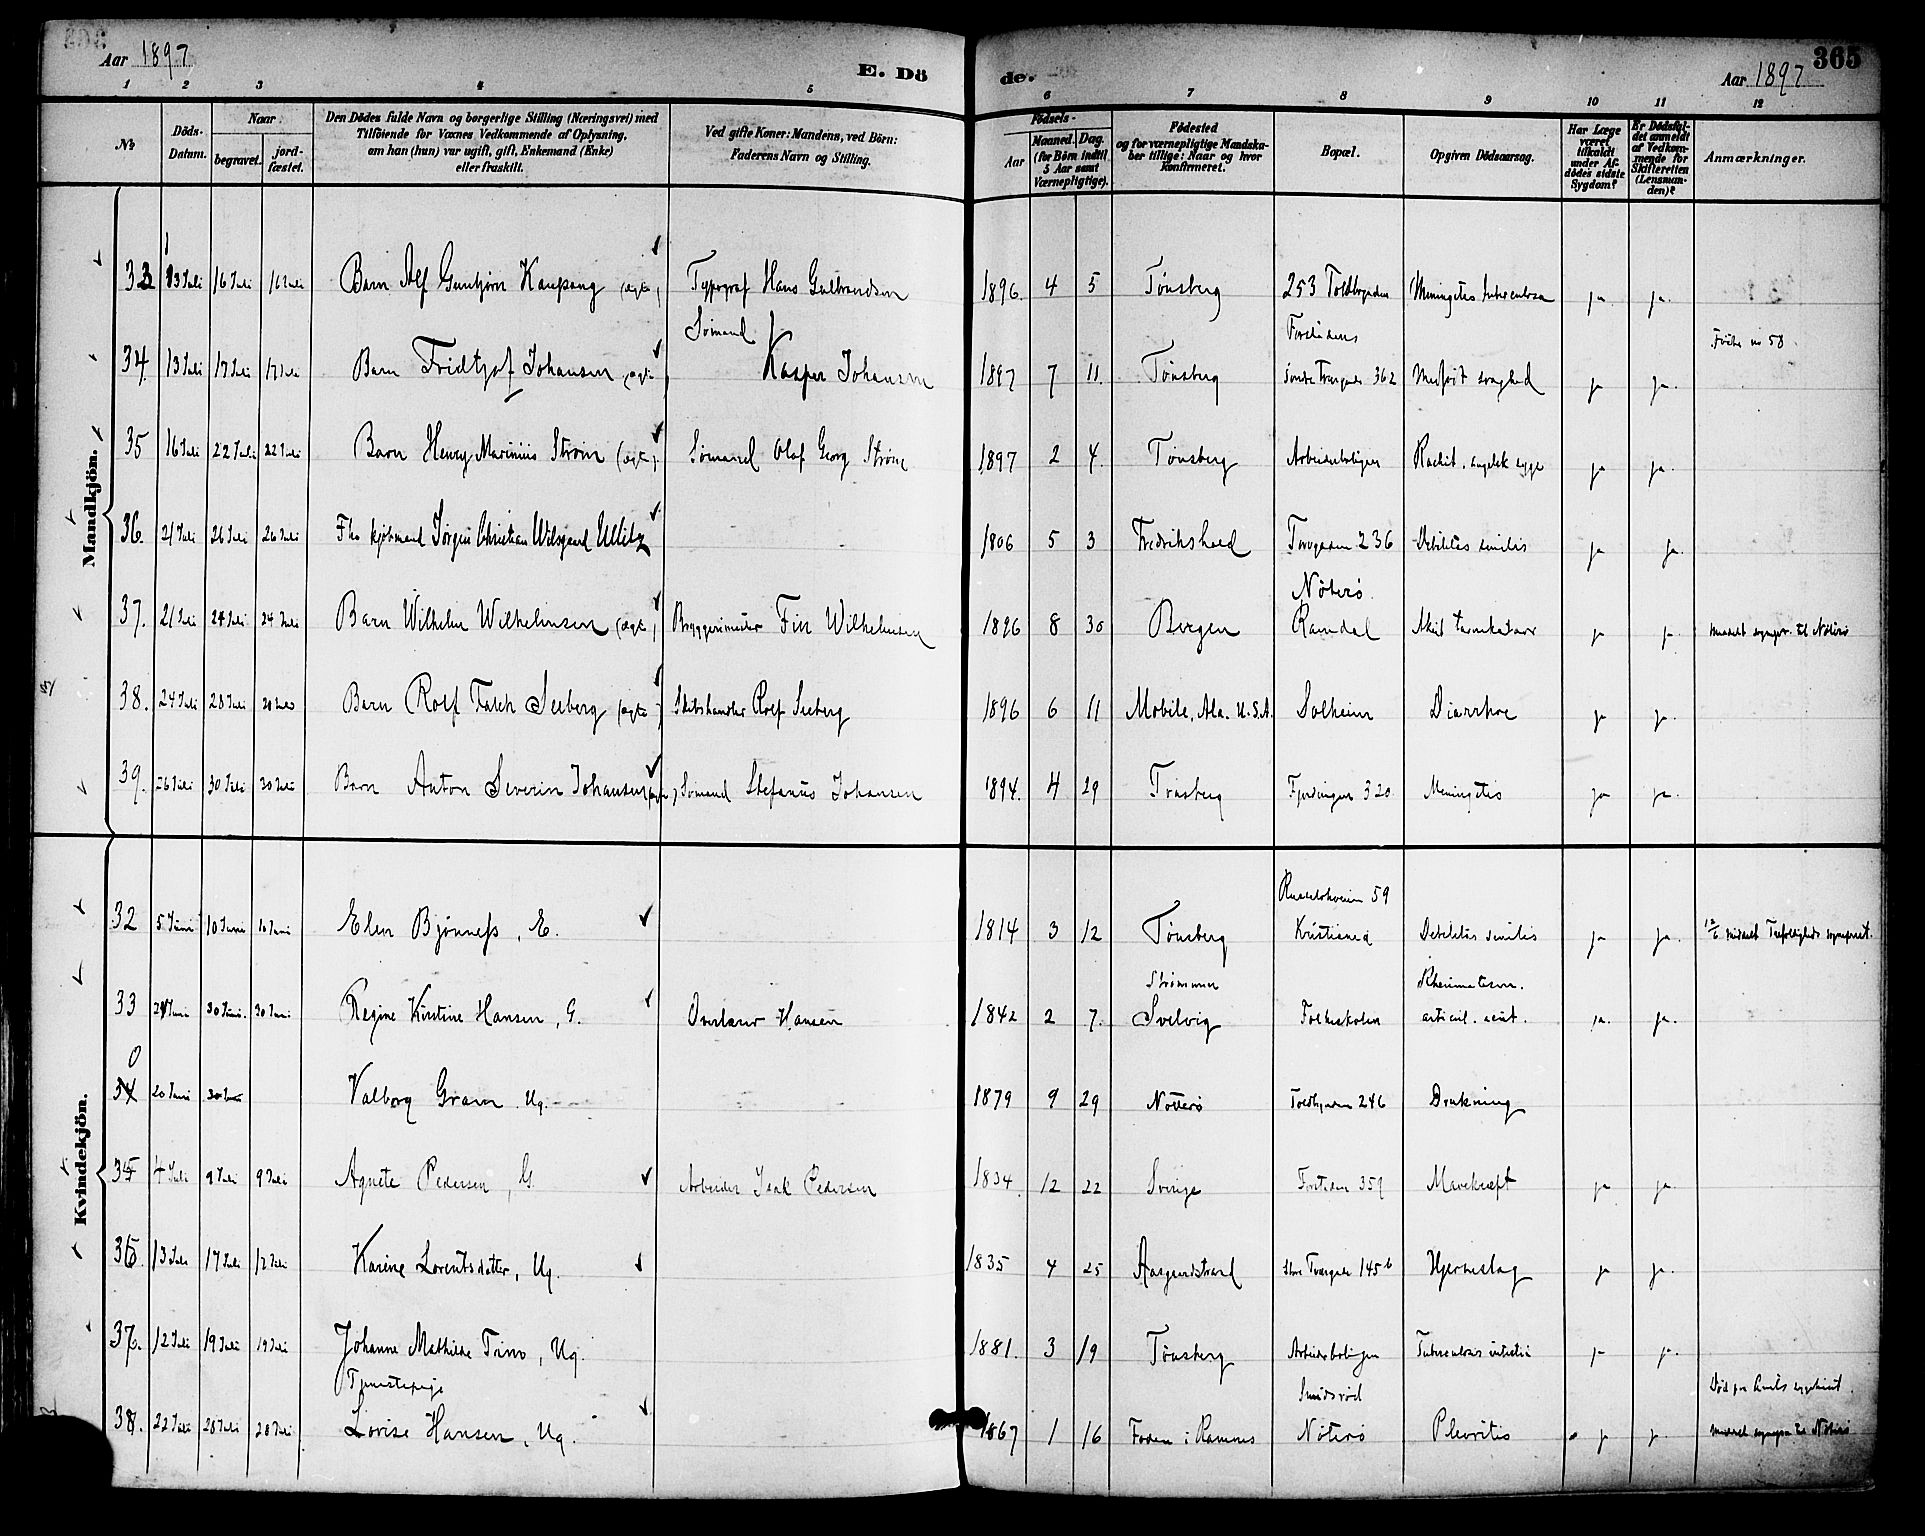 Aar 1897
E. Dö
de.
Aar 1897
365
1 2 3 4 5 6 7 8 9 10 11 12
№
Döds-Datum.
Naar
begravet.
jordfæstet.
Den Dödes fulde Navn og borgerlige Stilling (Næringsvei) med
Tilföiende for Voxnes Vedkommende af Oplysning,
om han (hun) var ugift, gift, Enkemand (Enke)
eller fraskilt.
Ved gifte Koner: Mandens, ved Börn:
Faderens Navn og Stilling.
Födsels-
Aar
Maaned. Dag.
(for Börn indtil
5 Aar samt
Værnepligtige).
Födested
og for værnepligtige Mandskaber tillige: Naar og hvor
Konfirmeret.
Bopæl.
Opgiven Dödsaarsag.
Har Læge
været
tilkaldt
under Afdödes sidste
Sygdom?
Er Dödsfaldet anmeldt
af Vedkommende for
Skifteretten
(Lensmanden)?
Anmærkninger.
Mandkjön.
33 13 Juli 16 Juli 16 Juli Barn Alf Gunbjörn Kaupang (ægte) Typograf Hans Gulbrandsen 1896. 4 5 Tönsberg 253 Toldbogaden Meningitis tuberculosa ja ja.
34. 13 Juli 17 Juli 17 Juli Barn Fridtjof Johansen (ægte) Sömand Kasper Johansen 1897 7 11. Tönsberg 362 Medfödt svaghed ja ja.
35 16 Juli 22 Juli 22 Juli Barn Henry Marinius Ström (ægte). Sömand Olaf Georg Ström 1897 2 4. Tönsberg Arbeiderboligen Rachit. engelsk syge ja ja.
36. 21 Juli 26 Juli 26 Juli Fhv kjöbmand Jörgen Christian Ullitz 1806 5 3 Fredrikshald Torvgaden 236 Debilitas senilis ja ja.
37. 21 Juli 24 Juli 24 Juli Barn Wilhelm Wilhelmsen (ægte) Bryggerimester Fin Wilhelmsen 1896 8 30 Bergen Nöterö Ramdal Akut tarmkatarr ja ja meddelt sognepr. til Nöterö
38. 24 Juli 28 Juli 28 Juli Barn Rolf Falch Seeberg (ægte) Skibshandler Rolf Seeberg 1896 6 11 Mobile, Ala. U.S.A. Solheim Diarrhoe ja ja.
39. 26 Juli 30 Juli 30 Juli Barn Anton Severin Johansen (ægte) Sömand Stefanus Johansen 1894. 4 29 Tönsberg Fjerdingen 320 Meningitis ja ja.
Kvindekjön.
32 5 Juni 10 Juni 10 Juni Elen Bjönness, E. 1814 3 12 Tönsberg 59 Kristiania Debilitas senilis ja ja. 12/6 meddelt Trefoldigheds sogneprest.
33 24 Juni 30 Juni. 30 Juni Regine Kirstine Hansen, G. Hansen 1842 2 7. Strömmen Svelvig Folkeskolen Rheumatism. articul. acut. ja. ja.
0
34 20 Juni 30 Juni Valborg Gram Ug. 1879 9 29 Nötterö Toldbgaden 246 Drukning
34 4 Juli 9 Juli 9 Juli Agnete Pedersen, G. Arbeider Isak Pedersen 1834. 12 22 Sverige Forstaden 359 Mavekræft ja ja.
36. 13 Juli 17 Juli 17 Juli Karine Lorentsdatter, Ug. 1835 4 25 Aasgaardstrand Store Tvergade 145 b Hjerneslag ja ja.
37. 12 Juli 19 Juli 19 Juli Johanne Mathilde Ug. 1881. 3 19 Tönsberg Arbeiderboligen Tuberculosis ja ja.
38. 22 Juli 28 Juli 28 Juli Tjenestepige Lovise Hansen, Ug. 1867 1 16 Foden i Ramnes Smidsröd Nöterö Pleuritis ja ja. Död paa Amts sygehuset. meddelt sognepr. til Nöterö